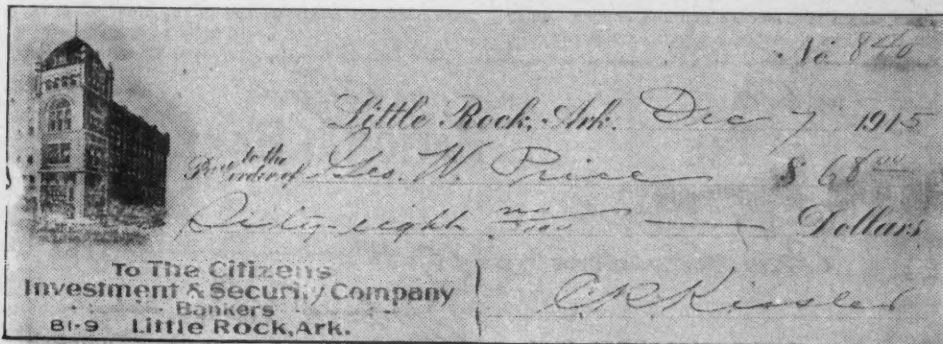 No 840
Little Rock, Ark. Dec 7 1915
Pay to the order of Geo. W. Price $ 68 00
Sixty-eight no/100 Dollars
To The Citizens
Investment & Security Company
Bankers
81-9 Little Rock, Ark.
C.R. Kinsler